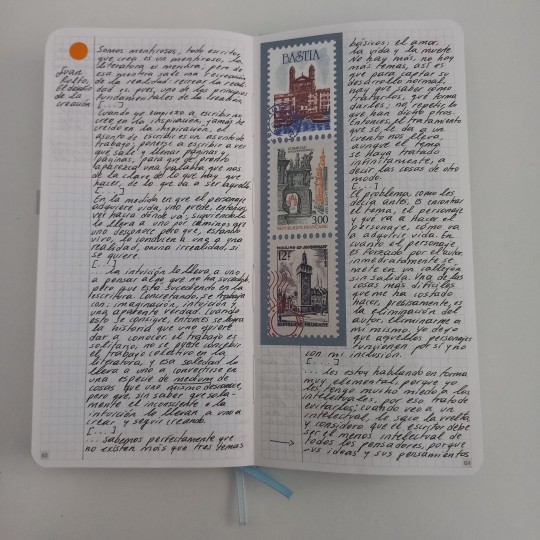 Juan
Rulfo,
El desafío
de la
creación
Somos mentirosos; todo escritor
que crea es un mentiroso, la
literatura es mentira; pero de
esa mentira sale una recreación
de la realidad; recrear la reali-
dad es, pues, uno de los principios
fundamentales de la creación.
[...]
Cuando yo empiezo a escribir no
creo en la inspiración, jamás he
creído en la inspiración, el
asunto de escribir es un asunto de
trabajo; ponerse a escribir a ver
qué sale y llenar páginas y
páginas, para que de pronto
aparezca una palabra que nos
dé la clave de lo que hay que
hacer, de lo que va a ser aquello.
[...]
En la medida en que el personaje
adquiere vida, uno puede, entonces,
ver hacia dónde va; siguiéndolo
lo lleva a uno por caminos que
uno desconoce pero que, estando
vivo, lo conducen a uno a una
realidad, o a una irrealidad, si
se quiere.
[...]
... la intuición lo lleva a uno
a pensar algo que no ha sucedido,
pero que está sucediendo en la
escritura. Concretando, se trabaja
con: imaginación, intuición y
una aparente verdad. Cuando
esto se consigue, entonces se logra
la historia que uno quiere
dar a conocer: el trabajo es
solitario, no se puede concebir
el trabajo colectivo en la
literatura, y esa soledad lo
lleva a uno a convertirse en
una especie de medium de
cosas que uno mismo desconoce,
pero que, sin saber que sola-
mente el inconsciente o la
intuición lo llevan a uno a
crear y seguir creando.
[...]
... sabemos perfectamente que
no existen más que tres temas
BASTIA
3,00
REPUBLIQUE FRANÇAISE
12F
REPUBLIQUE FRANÇAISE
básicos: el amor,
la vida y la muerte.
No hay más, no hay
más temas, así es
que para captar su
desarrollo normal,
hay que saber cómo
tratarlos, qué forma
darles; no repetir lo
que han dicho otros.
Entonces, el tratamiento
que se le da a un
cuento nos lleva,
aunque el tema
se haya tratado
infinitamente, a
decir las cosas de otro
modo.
[...]
El problema, como les
decía antes, es encontrar
el tema, el personaje
y qué va a hacer el
personaje, cómo va
a adquirir vida. En
cuanto el personaje
es forzado por el autor,
inmediatamente se
mete en un callejón
sin salida. Una de las
cosas más difíciles
que me ha costado
hacer, precisamente, es
la eliminación del
autor, eliminarme a
mí mismo. Yo dejo
que aquellos personajes
funcionen por sí y no
con mi inclusión.
[...]
... les estoy hablando en forma
muy elemental, porque yo
les tengo mucho miedo a los
intelectuales, por eso trato de
evitarlos; cuando veo a un
intelectual, le saco la vuelta,
y considero que el escritor debe
ser el menos intelectual de
todos los pensadores, porque
sus ideas y sus pensamientos